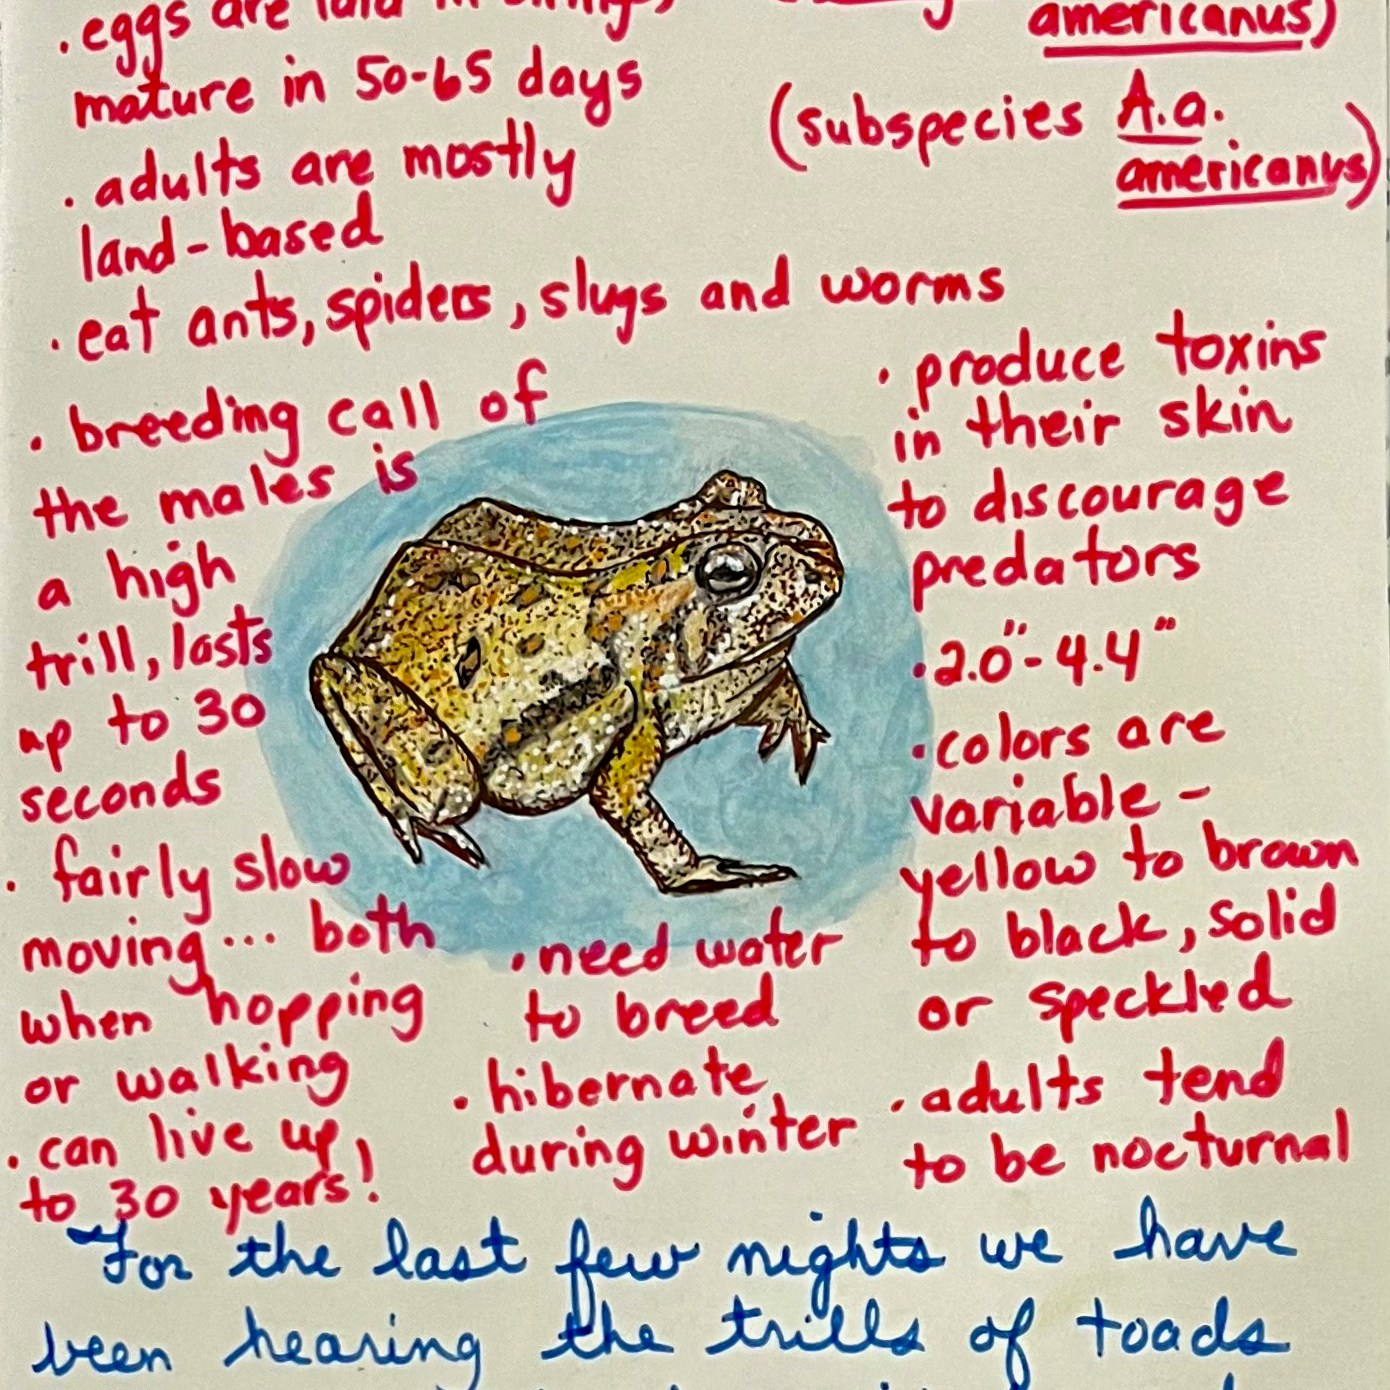 . eggs are laid in strings,
mature in 50-65 days
. adults are mostly
land-based
. eat ants, spiders, slugs and worms
. breeding call of
the males is
a high
trill, lasts
up to 30
seconds
. fairly slow
moving... both
when hopping
or walking
. can live up
to 30 years!
. need water
to breed
. hibernate
during winter
americanus)
(subspecies A.a.
americanus)
. produce toxins
in their skin
to discourage
predators
. 2.0"-4.4"
. colors are
variable -
yellow to brown
to black, solid
or speckled
. adults tend
to be nocturnal
For the last few nights we have
been hearing the trills of toads